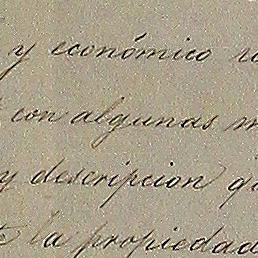 y económico
con algunas
y descripcion
la propiedad